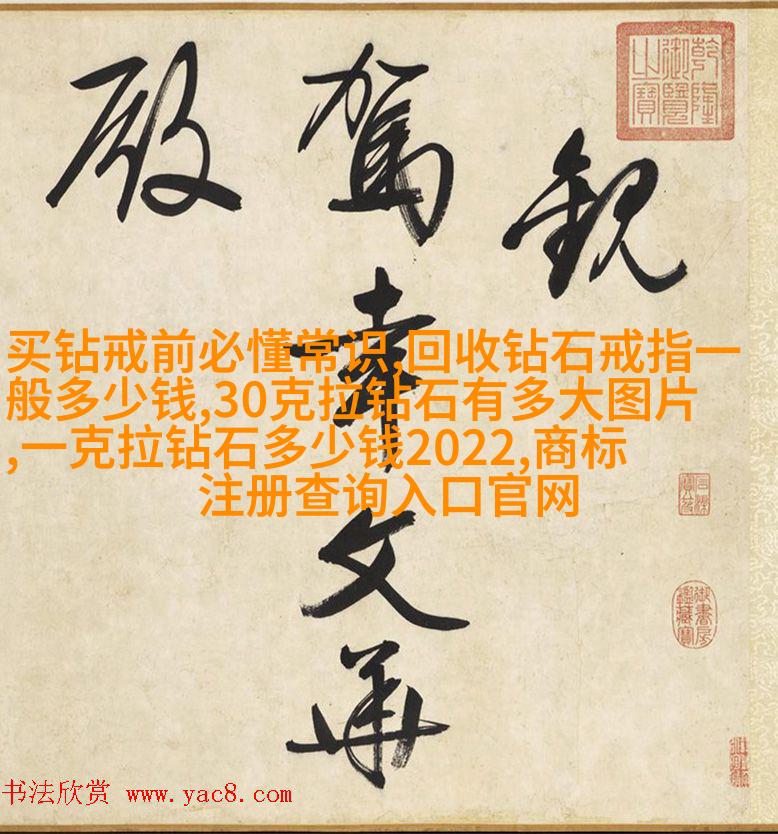 乾隆
御覽
之寶
觀
駕幸文華
殿
买钻戒前必懂常识,回收钻石戒指一
般多少钱,30克拉钻石有多大图片
,一克拉钻石多少钱2022,商标
注册查询入口官网
石渠
寶笈
御書房
鑑藏寶
书法欣赏 www.yac8.com